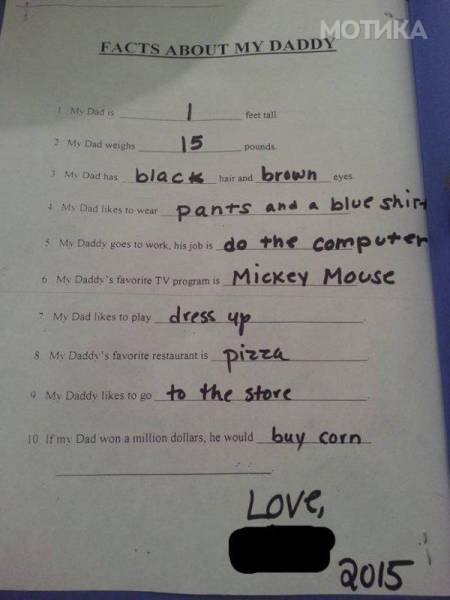 МОТИКА
FACTS ABOUT MY DADDY
1 My Dad is 1 feet tall.
2 My Dad weighs 15 pounds.
3 My Dad has black hair and brown eyes.
4. My Dad likes to wear pants and a blue shirt
5. My Daddy goes to work, his job is do the computer
6 My Daddy's favorite TV program is Mickey Mouse
7 My Dad likes to play dress up.
8 My Daddy's favorite restaurant is pizza.
9. My Daddy likes to go to the store.
10. If my Dad won a million dollars, he would buy corn
Love,
2015